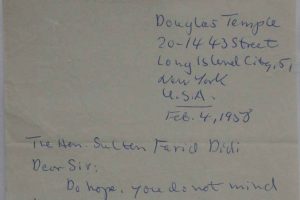 Douglas Temple
20-14 43 Street
Long Island City, 5,
New York
U.S.A.
Feb. 4, 1958
The Hon. Sultan Farid Didi
Dear Sir:
Do hope, you do not mind